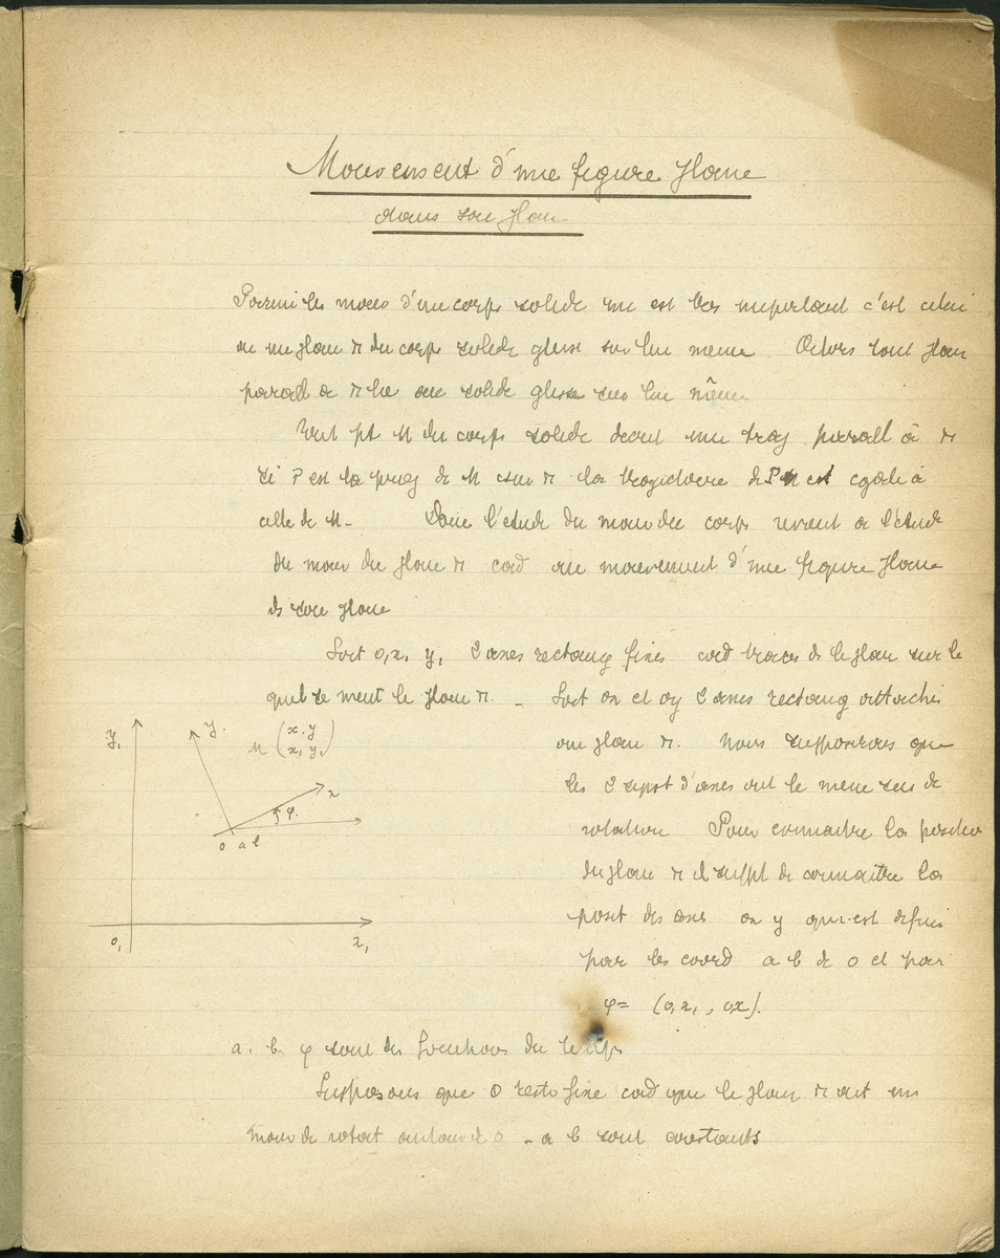 Mouvement d'une figure plane
dans son plan
Parmi les mouv d'un corps solide un est très important c'est celui
où un plan π du corps solide glisse sur lui même Alors tout plan
parall à π lié au solide glisse sur lui même
Tout pt M du corps solide décrit une traj parall à π
Si P est la proj de M sur π la trajectoire de P est égale à
celle de M - Donc l'étude du mouv du corps revient à l'étude
du mouv du plan π cad au mouvement d'une figure plane
ds son plan
Soit o,x, y, 2 axes rectang fixes cad tracés ds le plan sur le
quel se meut le plan π - Soit ox et oy 2 axes rectang attachés
au plan π. Nous supposerons que
les 2 syst d'axes ont le même sens de
rotation Pour connaitre la position
du plan π il suffit de connaître la
posit des axes ox y qui est défini
par les coord a b de o et par
φ= (o,x, , ox).
y₁
y.
M (x.y
x, y,)
x
φ.
o a b
o₁
x₁
a. b. φ sont des fonctions du temps
Supposons que O reste fixe cad que le plan π ait un
mouv de rotat autour de o - a b sont constants